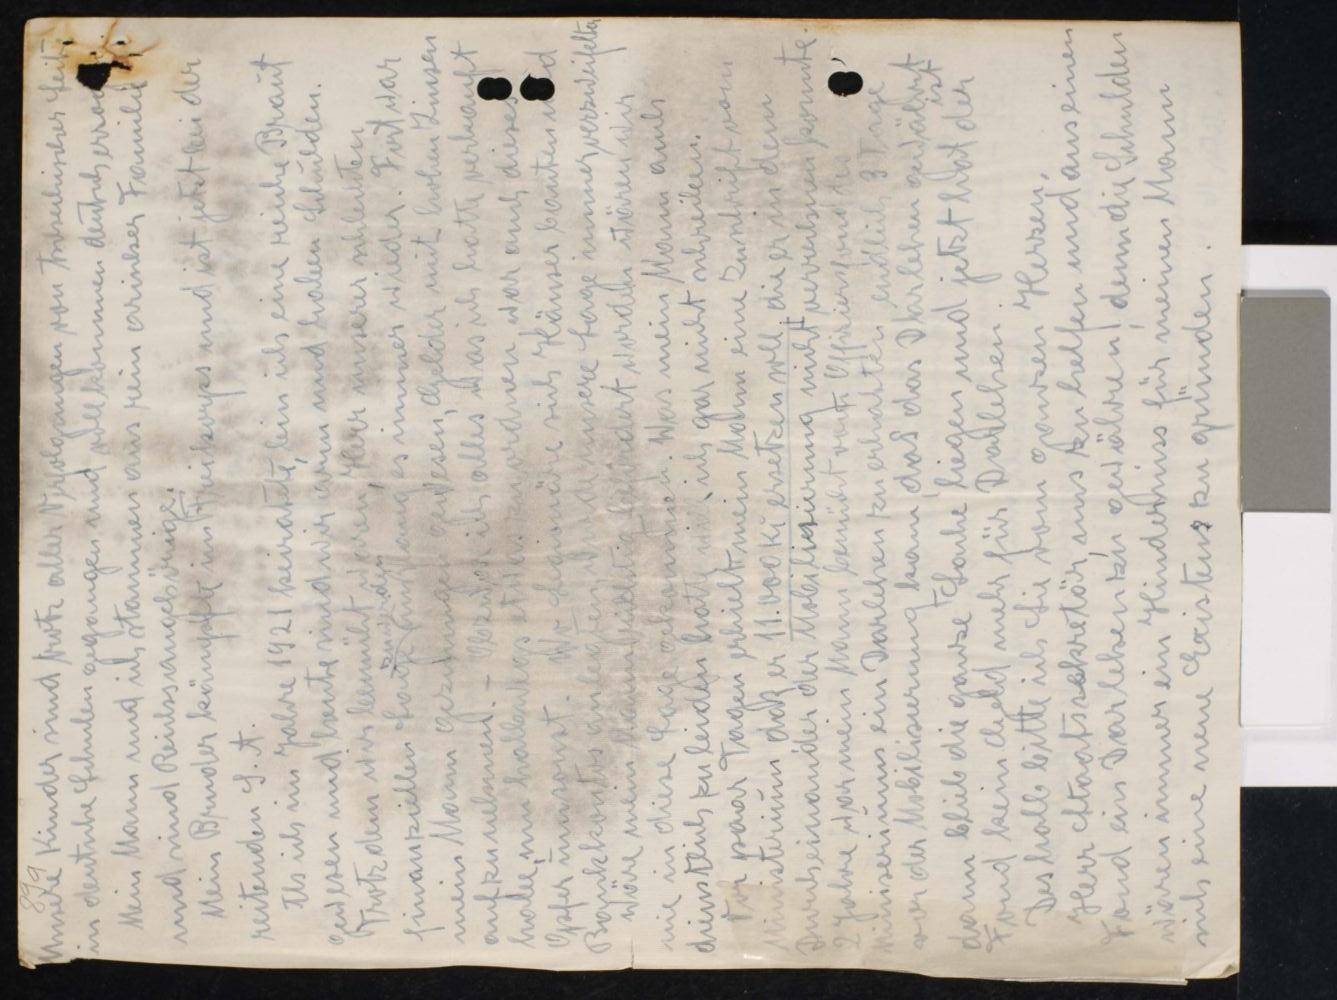 899
Unsere Kinder sind trotz aller Verlockungen von tschechischer Seite
in deutsche Schulen gegangen und vollkommen deutsch erzogen
Mein Mann und ich stammen aus rein arischer Familie
und sind Reichsangehörige.
Mein Bruder kämpft im Freikorps und ist jetzt bei der
reitenden S.A.
Als ich im Jahre 1921 heiratete, bin ich eine reiche Braut
gewesen und heute sind wir arm und haben Schulden.
Trotzdem wir bemüht waren, Herr unserer schlechten
finanziellen Lage zu werden, ging es immer wieder. Fort war
mein Mann gezwungen gewesen, Gelder mit hohen Zinsen
aufzunehmen. – Obzwar ich alles was ich hatte verkauft
habe, um halbwegs zu ordnen war auch dieses
Opfer umsonst.
Bankkonto unsere Lage immer verzweifelter
wäre mein geworden wären wir
nie in diese Lage gekommen. Was mein Mann auch
dienstlich zu leiden hatte will ich gar nicht schreiben.
Vor paar Tagen erhielt mein Mann eine Zuschrift vom
Ministerium daß er 11.000 Kč ersetzen soll die er in dem
Durcheinander der Mobilisierung nicht verrechnen konnte.
2 Jahre war mein Mann bemüht vom Offiziersfond des
Ministeriums ein Darlehen zu erhalten endlich 3 Tage
vor der Mobilisierung kam, daß das Darlehen gewährt ist
dann blieb die ganze Sache liegen und jetzt hat der
Fond kein Geld mehr für Darlehen.
Deshalb bitte ich Sie vom ganzen Herzen,
Herr Staatssekretär, uns zu helfen und aus einem
Fond ein Darlehen zu gewähren, denn die Schulden
wären immer ein Hinderniss für meinen Mann
sich eine neue Existenz zu gründen.